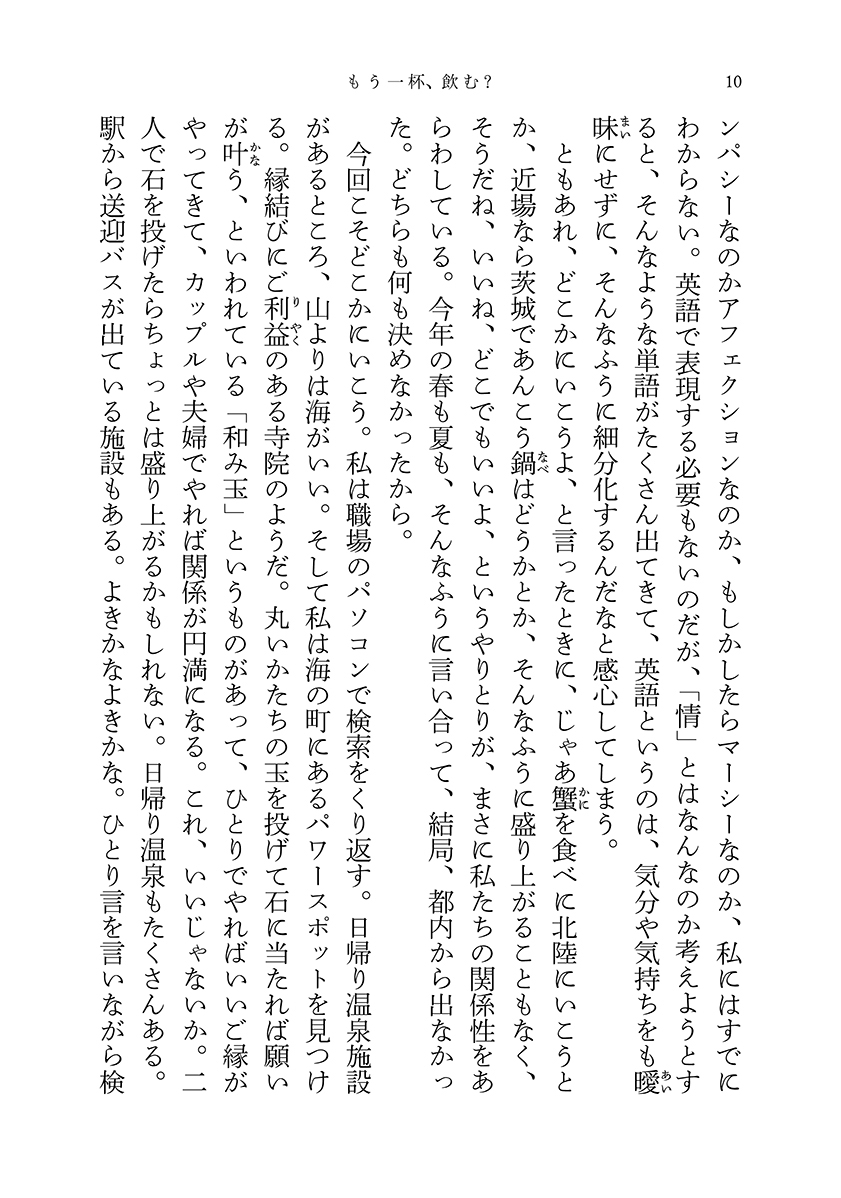 もう一杯、飲む？
10
ンパシーなのかアフェクションなのか、もしかしたらマーシーなのか、私にはすでに
わからない。英語で表現する必要もないのだが、「情」とはなんなのか考えようとす
ると、そんなような単語がたくさん出てきて、英語というのは、気分や気持ちをも曖あい
昧まいにせずに、そんなふうに細分化するんだなと感心してしまう。
ともあれ、どこかにいこうよ、と言ったときに、じゃあ蟹かにを食べに北陸にいこうと
か、近場なら茨城であんこう鍋なべはどうかとか、そんなふうに盛り上がることもなく、
そうだね、いいね、どこでもいいよ、というやりとりが、まさに私たちの関係性をあ
らわしている。今年の春も夏も、そんなふうに言い合って、結局、都内から出なかっ
た。どちらも何も決めなかったから。
今回こそどこかにいこう。私は職場のパソコンで検索をくり返す。日帰り温泉施設
があるところ、山よりは海がいい。そして私は海の町にあるパワースポットを見つけ
る。縁結びにご利益りやくのある寺院のようだ。丸いかたちの玉を投げて石に当たれば願い
が叶かなう、といわれている「和み玉」というものがあって、ひとりでやればいいご縁が
やってきて、カップルや夫婦でやれば関係が円満になる。これ、いいじゃないか。二
人で石を投げたらちょっとは盛り上がるかもしれない。日帰り温泉もたくさんある。
駅から送迎バスが出ている施設もある。よきかなよきかな。ひとり言を言いながら検